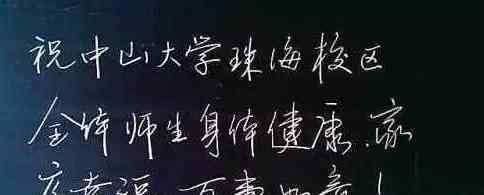 祝中山大学珠海校区
全体师生身体健康、家
庭幸福、万事如意！